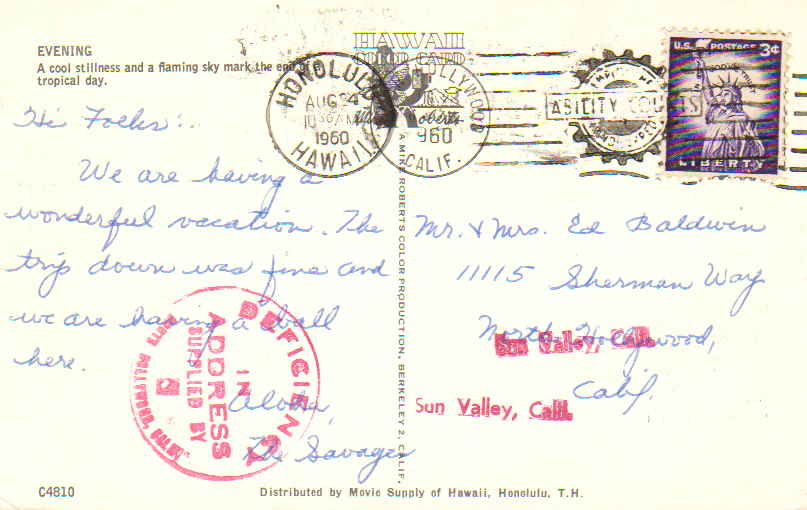 EVENING
A cool stillness and a flaming sky mark the end of a
tropical day.
HAWAII
COLOR CARD
HONOLULU
AUG 24
1960
HAWAII
HOLLYWOOD
960
CALIF.
ABILITY COUNTS
U.S. POSTAGE 3¢
IN GOD WE TRUST
LIBERTY
Hi Folks:.
We are having a
wonderful vacation. The
trip down was fine and
we are having a ball
here.
Aloha,
The Savages
A MIKE ROBERTS COLOR PRODUCTION, BERKELEY 2, CALIF.
Mr. & Mrs. Ed Baldwin
11115 Sherman Way
North Hollywood,
Calif.
Sun Valley, Calif.
Sun Valley, Calif.
DEFICIENCY
IN
ADDRESS
SUPPLIED BY
NORTH HOLLYWOOD, CALIF.
C4810
Distributed by Movie Supply of Hawaii, Honolulu, T.H.